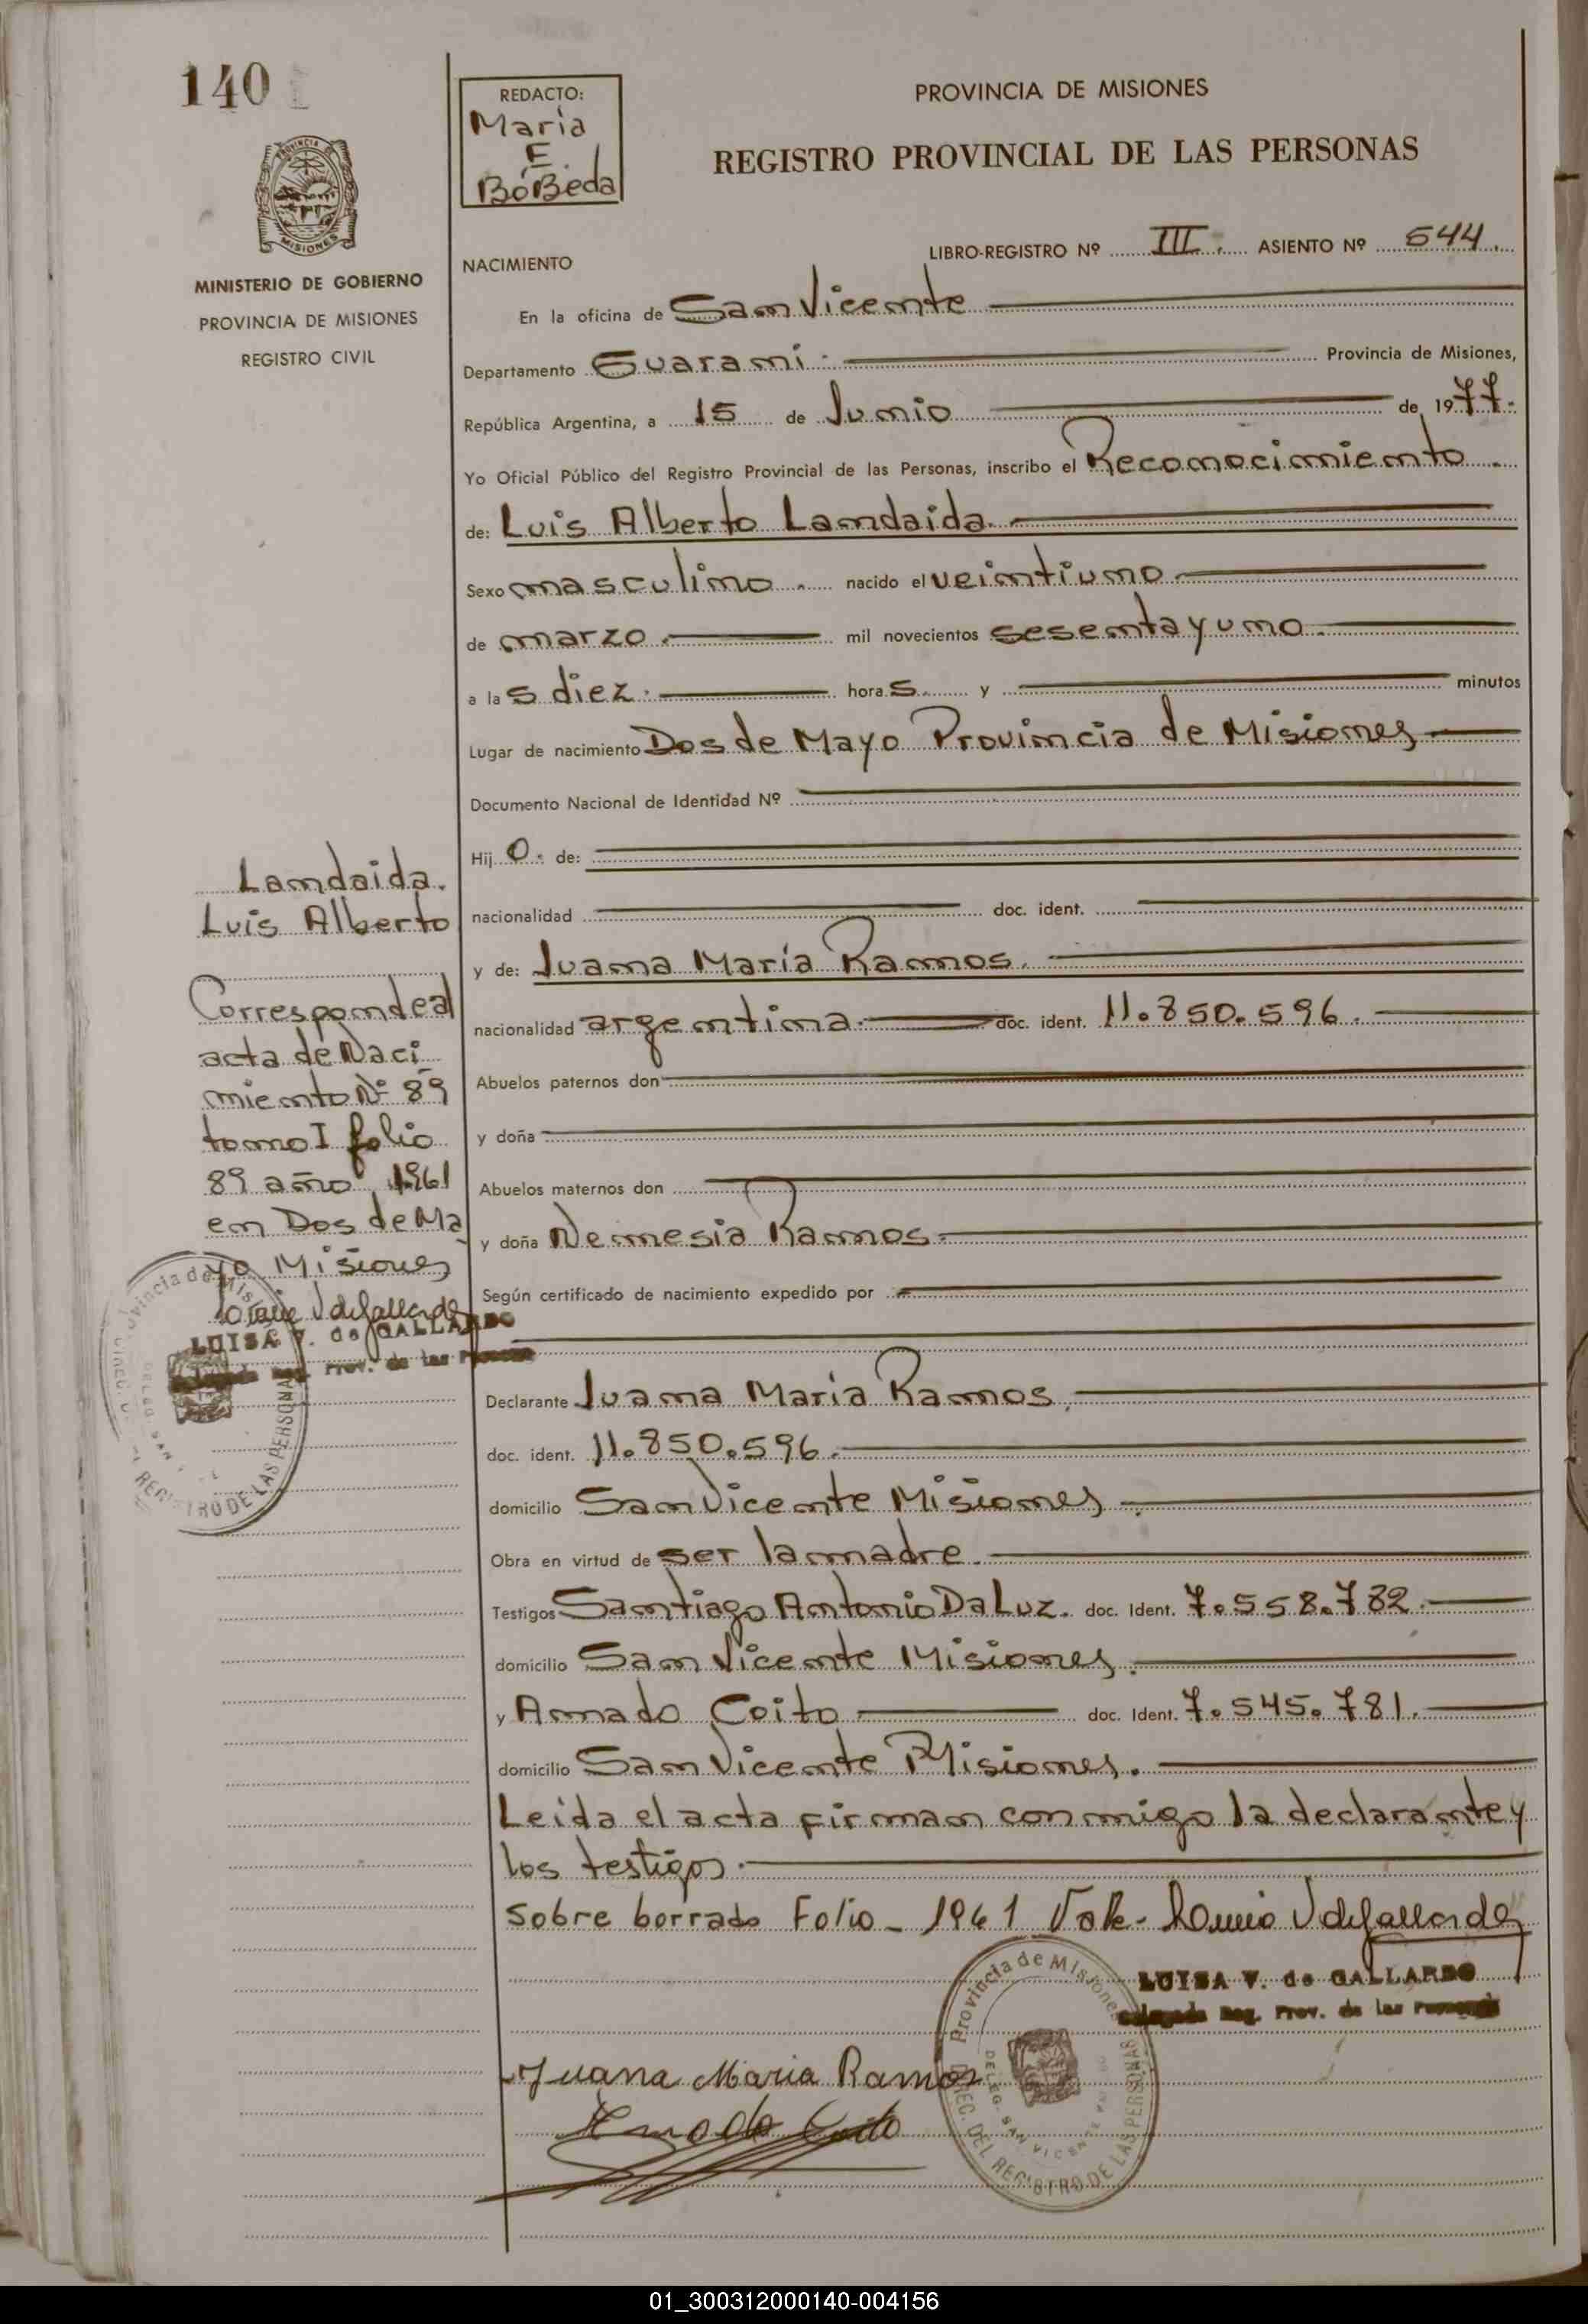 140
MINISTERIO DE GOBIERNO
PROVINCIA DE MISIONES
REGISTRO CIVIL
REDACTO:
Maria
E.
BóBeda
PROVINCIA DE MISIONES
REGISTRO PROVINCIAL DE LAS PERSONAS
LIBRO-REGISTRO Nº III. ASIENTO Nº 544.
NACIMIENTO
En la oficina de San Vicente
Departamento Guarani. Provincia de Misiones,
República Argentina, a 15 de Junio de 1977.
Yo Oficial Público del Registro Provincial de las Personas, inscribo el Reconocimiento
de: Luis Alberto Landaida.
Sexo masculino. nacido el veintiuno
de marzo. mil novecientos sesenta y uno.
a las diez. horas y minutos
Lugar de nacimiento Dos de Mayo Provincia de Misiones
Documento Nacional de Identidad Nº
Hijo. de:
nacionalidad doc. ident.
y de: Juana Maria Ramos.
nacionalidad argentina. doc. ident. 11.850.596.
Abuelos paternos don
y doña
Abuelos maternos don
y doña Nemesia Ramos.
Según certificado de nacimiento expedido por
Declarante Juana Maria Ramos.
doc. ident. 11.850.596.
domicilio San Vicente Misiones
Obra en virtud de ser la madre.
Testigos Santiago Antonio Da Luz. doc. Ident. 7.558.782.
domicilio San Vicente Misiones.
y Amado Coito doc. Ident. 7.545.781.
domicilio San Vicente Misiones.
Leida el acta firman conmigo la declarante y
los testigos.
Sobre borrado Folio - 1961 Vale -
LUISA V. de GALLARDO
Delegada Reg. Prov. de las Personas
Juana Maria Ramos
Amado Coito
Provincia de Misiones
DIREC. DEL REGISTRO DE LAS PERSONAS
DELEG. SAN VICENTE
Landaida.
Luis Alberto
Corresponde al
acta de Naci
miento Nº 89
tomo I folio
89 año 1961
en Dos de Ma
yo Misiones
LUISA V. de GALLARDO
Delegada Reg. Prov. de las Personas
Provincia de Misi
REGISTRO DE LAS PERSONAS
01_300312000140-004156